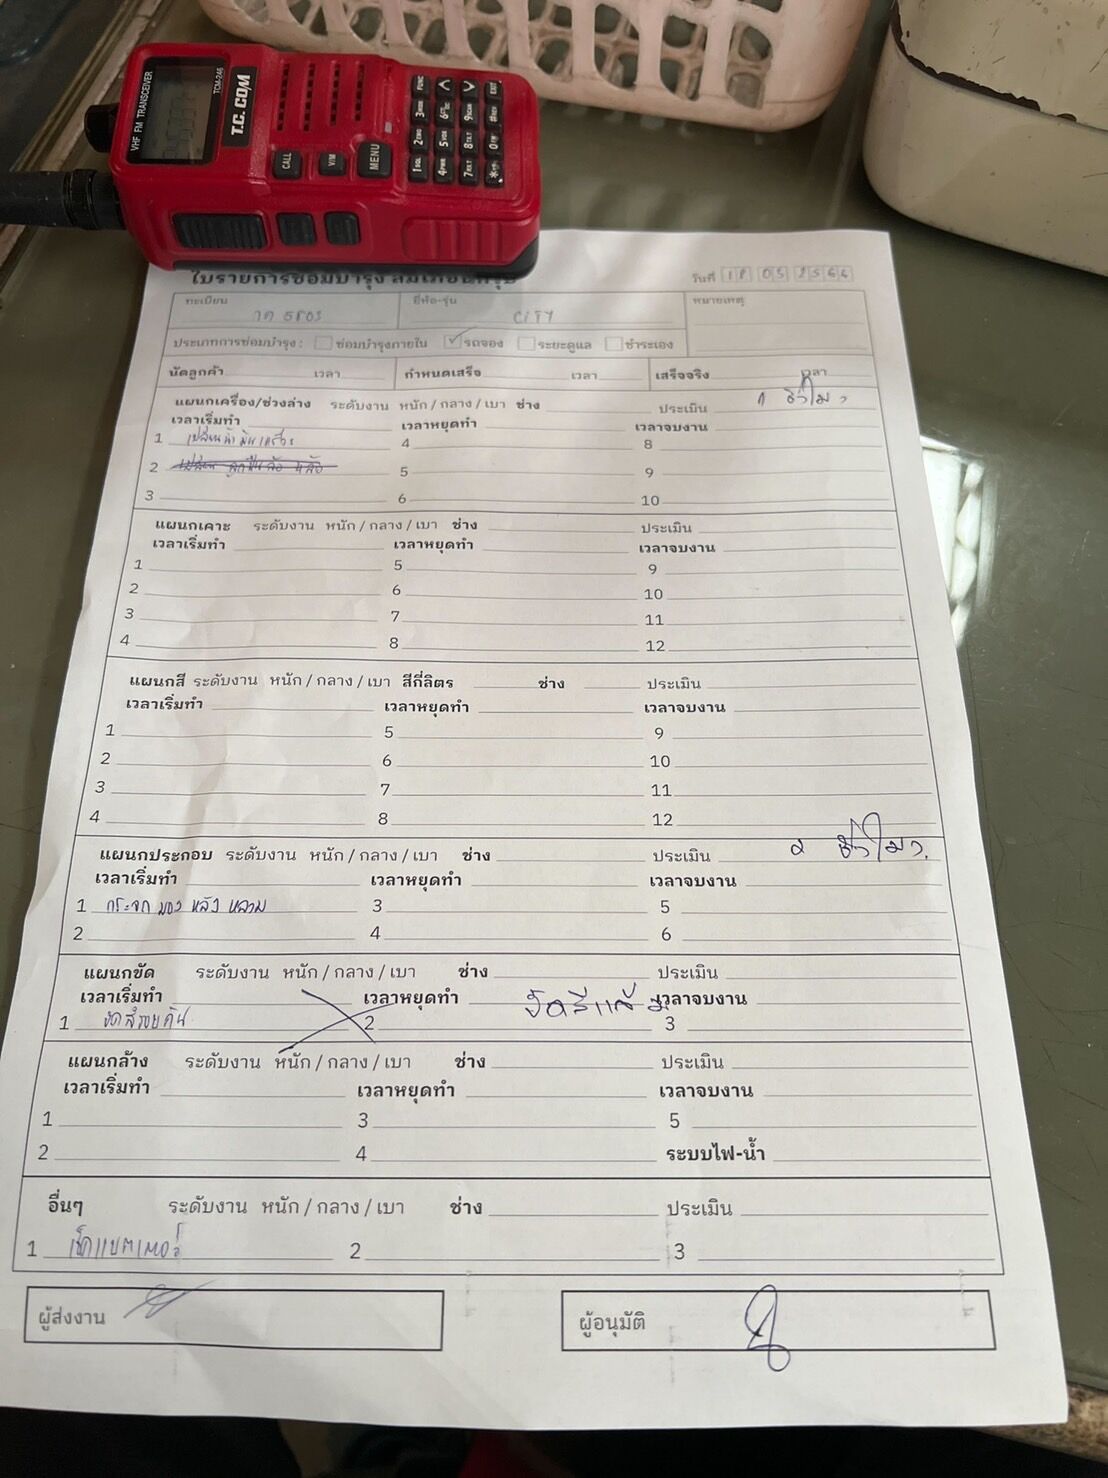 VHF FM TRANSCEIVER
TCM-246
T.C. COM
CALL V/M MENU
FUNC EXIT
ใบรายการซ่อมบำรุง
วันที่ 18 05 2564
ทะเบียน
ยี่ห้อ-รุ่น CITY
หมายเหตุ
ประเภทการซ่อมบำรุง : ซ่อมบำรุงภายใน ✓ รถจอง ระยะดูแล ชำระเอง
นัดลูกค้า เวลา กำหนดเสร็จ เวลา เสร็จจริง เวลา
แผนกเครื่อง/ช่วงล่าง ระดับงาน หนัก / กลาง / เบา ช่าง ประเมิน 1 ชั่วโมง
เวลาเริ่มทำ เวลาหยุดทำ เวลาจบงาน
1 เปลี่ยนน้ำมันเครื่อง 4 8
2 เปลี่ยน ลูกปืนล้อ หลัง 5 9
3 6 10
แผนกเคาะ ระดับงาน หนัก / กลาง / เบา ช่าง ประเมิน
เวลาเริ่มทำ เวลาหยุดทำ เวลาจบงาน
1 5 9
2 6 10
3 7 11
4 8 12
แผนกสี ระดับงาน หนัก / กลาง / เบา สีกี่ลิตร ช่าง ประเมิน
เวลาเริ่มทำ เวลาหยุดทำ เวลาจบงาน
1 5 9
2 6 10
3 7 11
4 8 12
แผนกประกอบ ระดับงาน หนัก / กลาง / เบา ช่าง ประเมิน 2 ชั่วโมง
เวลาเริ่มทำ เวลาหยุดทำ เวลาจบงาน
1 กระจก มอง หลัง หลวม 3 5
2 4 6
แผนกขัด ระดับงาน หนัก / กลาง / เบา ช่าง ประเมิน
เวลาเริ่มทำ เวลาหยุดทำ ขัดสีแล้ว เวลาจบงาน
1 ขัดสีรอบคัน 2 3
แผนกล้าง ระดับงาน หนัก / กลาง / เบา ช่าง ประเมิน
เวลาเริ่มทำ เวลาหยุดทำ เวลาจบงาน
1 3 5
2 4 ระบบไฟ-น้ำ
อื่นๆ ระดับงาน หนัก / กลาง / เบา ช่าง ประเมิน
1 เช็คแบตเตอรี่ 2 3
ผู้ส่งงาน
ผู้อนุมัติ